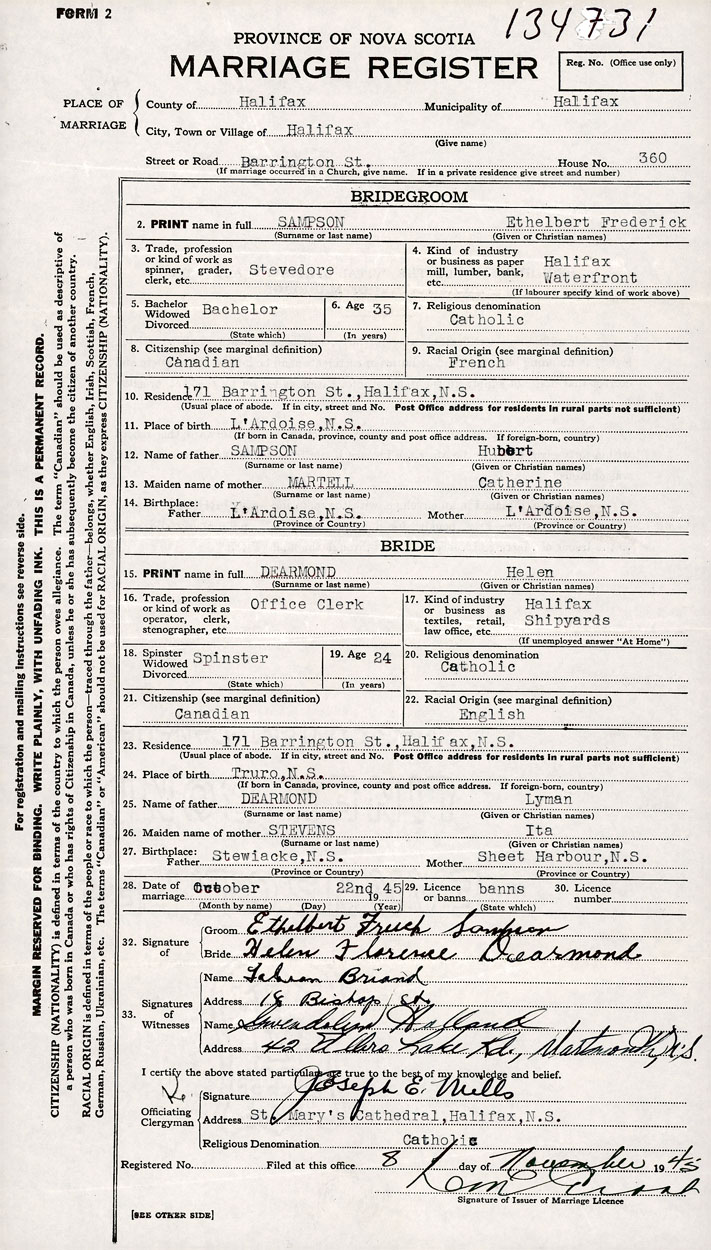 FORM 2
134731
PROVINCE OF NOVA SCOTIA
MARRIAGE REGISTER
Reg. No. (Office use only)
PLACE OF MARRIAGE
County of Halifax Municipality of Halifax
City, Town or Village of Halifax
(Give name)
Street or Road Barrington St. House No. 360
(If marriage occurred in a Church, give name. If in a private residence give street and number)
BRIDEGROOM
2. PRINT name in full SAMPSON Ethelbert Frederick
(Surname or last name) (Given or Christian names)
3. Trade, profession or kind of work as spinner, grader, clerk, etc. Stevedore
4. Kind of industry or business as paper mill, lumber, bank, etc. Halifax Waterfront
(If labourer specify kind of work above)
5. Bachelor Widowed Divorced Bachelor
(State which)
6. Age 35
(In years)
7. Religious denomination
Catholic
8. Citizenship (see marginal definition)
Canadian
9. Racial Origin (see marginal definition)
French
10. Residence 171 Barrington St.,Halifax,N.S.
(Usual place of abode. If in city, street and No. Post Office address for residents in rural parts not sufficient)
11. Place of birth L'Ardoise,N.S.
(If born in Canada, province, county and post office address. If foreign-born, country)
12. Name of father SAMPSON Hubert
(Surname or last name) (Given or Christian names)
13. Maiden name of mother MARTELL Catherine
(Surname or last name) (Given or Christian names)
14. Birthplace:
Father L'Ardoise,N.S. Mother L'Ardoise,N.S.
(Province or Country) (Province or Country)
BRIDE
15. PRINT name in full DEARMOND Helen
(Surname or last name) (Given or Christian names)
16. Trade, profession or kind of work as operator, clerk, stenographer, etc. Office Clerk
17. Kind of industry or business as textiles, retail, law office, etc. Halifax Shipyards
(If unemployed answer "At Home")
18. Spinster Widowed Divorced Spinster
(State which)
19. Age 24
(In years)
20. Religious denomination
Catholic
21. Citizenship (see marginal definition)
Canadian
22. Racial Origin (see marginal definition)
English
23. Residence 171 Barrington St.,Halifax,N.S.
(Usual place of abode. If in city, street and No. Post Office address for residents in rural parts not sufficient)
24. Place of birth Truro,N.S.
(If born in Canada, province, county and post office address. If foreign-born, country)
25. Name of father DEARMOND Lyman
(Surname or last name) (Given or Christian names)
26. Maiden name of mother STEVENS Ita
(Surname or last name) (Given or Christian names)
27. Birthplace:
Father Stewiacke,N.S. Mother Sheet Harbour,N.S.
(Province or Country) (Province or Country)
28. Date of marriage October 22nd 19 45
(Month by name) (Day) (Year)
29. Licence or banns banns
(State which)
30. Licence number
32. Signature of
Groom Ethelbert Sampson
Bride Helen Florence Dearmond
33. Signatures of Witnesses
Name Briand
Address 18 Bishop St.
Name Gwendolyn Holland
Address 42 Lake Rd., Dartmouth, N.S.
I certify the above stated particulars are true to the best of my knowledge and belief.
Officiating Clergyman
Signature Joseph E. Mills
Address St. Mary's Cathedral,Halifax,N.S.
Religious Denomination Catholic
Registered No. Filed at this office 8 day of November 19 45
Signature of Issuer of Marriage Licence
[SEE OTHER SIDE]
For registration and mailing instructions see reverse side.
MARGIN RESERVED FOR BINDING. WRITE PLAINLY, WITH UNFADING INK. THIS IS A PERMANENT RECORD.
CITIZENSHIP (NATIONALITY) is defined in terms of the country to which the person owes allegiance. The term "Canadian" should be used as descriptive of
a person who was born in Canada or who has rights of Citizenship in Canada, unless he or she has subsequently become the citizen of another country.
RACIAL ORIGIN is defined in terms of the people or race to which the person—traced through the father—belongs, whether English, Irish, Scottish, French,
German, Russian, Ukrainian, etc. The terms "Canadian" or "American" should not be used for RACIAL ORIGIN, as they express CITIZENSHIP (NATIONALITY).